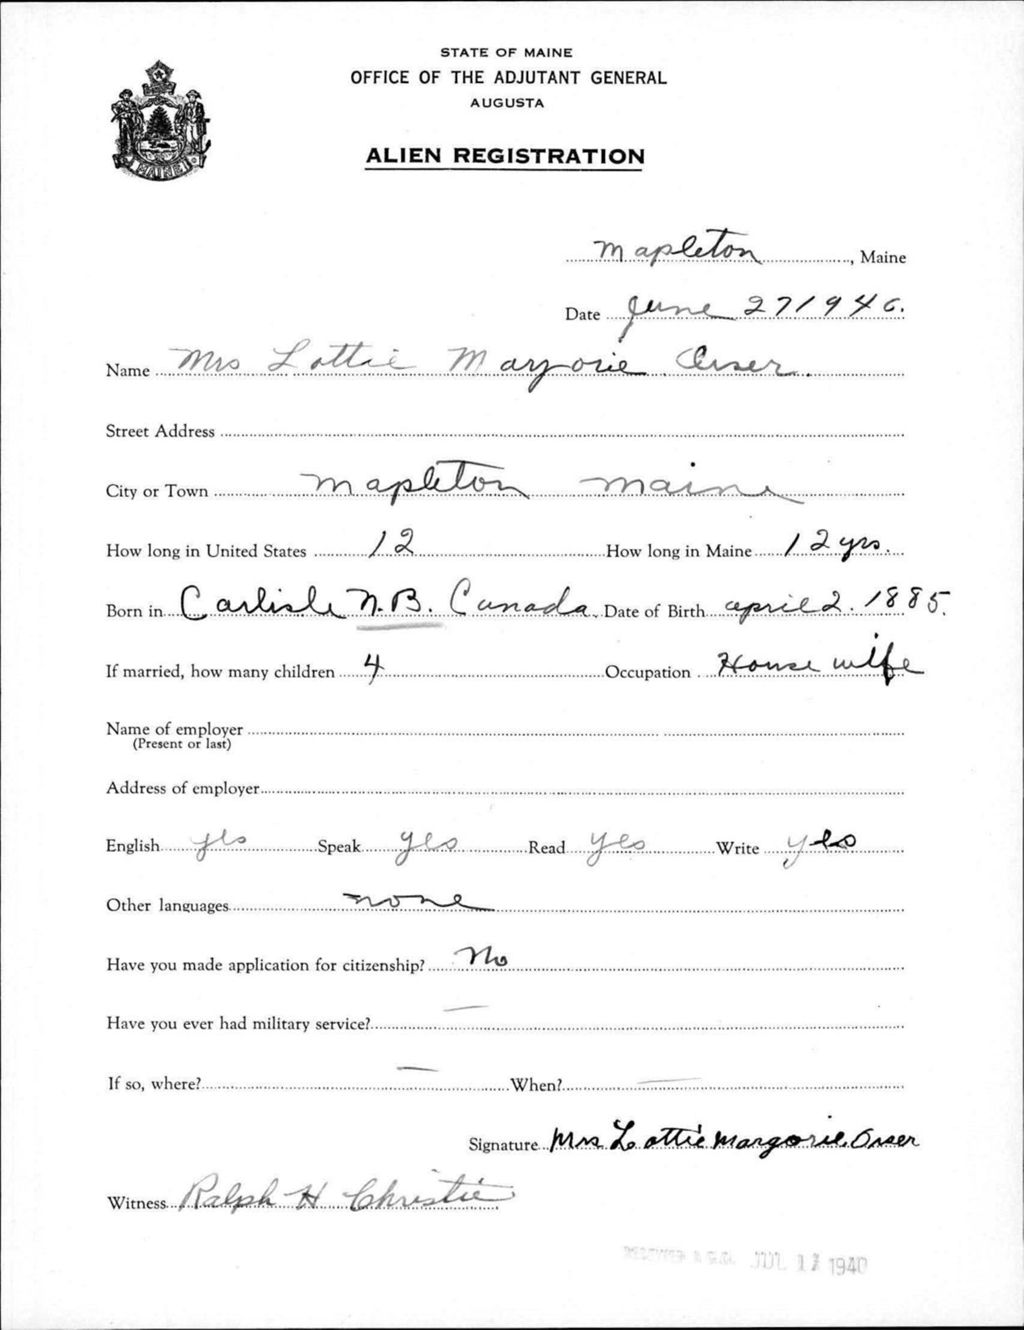 STATE OF MAINE
OFFICE OF THE ADJUTANT GENERAL
AUGUSTA
ALIEN REGISTRATION
MAINE
Mapleton, Maine
Date June 27 1940.
Name Mrs Lottie Marjorie Orser.
Street Address
City or Town Mapleton Maine
How long in United States 12 How long in Maine 12 yrs.
Born in Carlisle N.B. Canada. Date of Birth april 2. 1885.
If married, how many children 4 Occupation House wife
Name of employer
(Present or last)
Address of employer
English yes Speak yes Read yes Write yes
Other languages none
Have you made application for citizenship? No
Have you ever had military service? —
If so, where? — When? —
Signature Mrs. Lottie Margorie Orser
Witness Ralph H Christie
RECEIVED A.G.O. JUL 17 1940